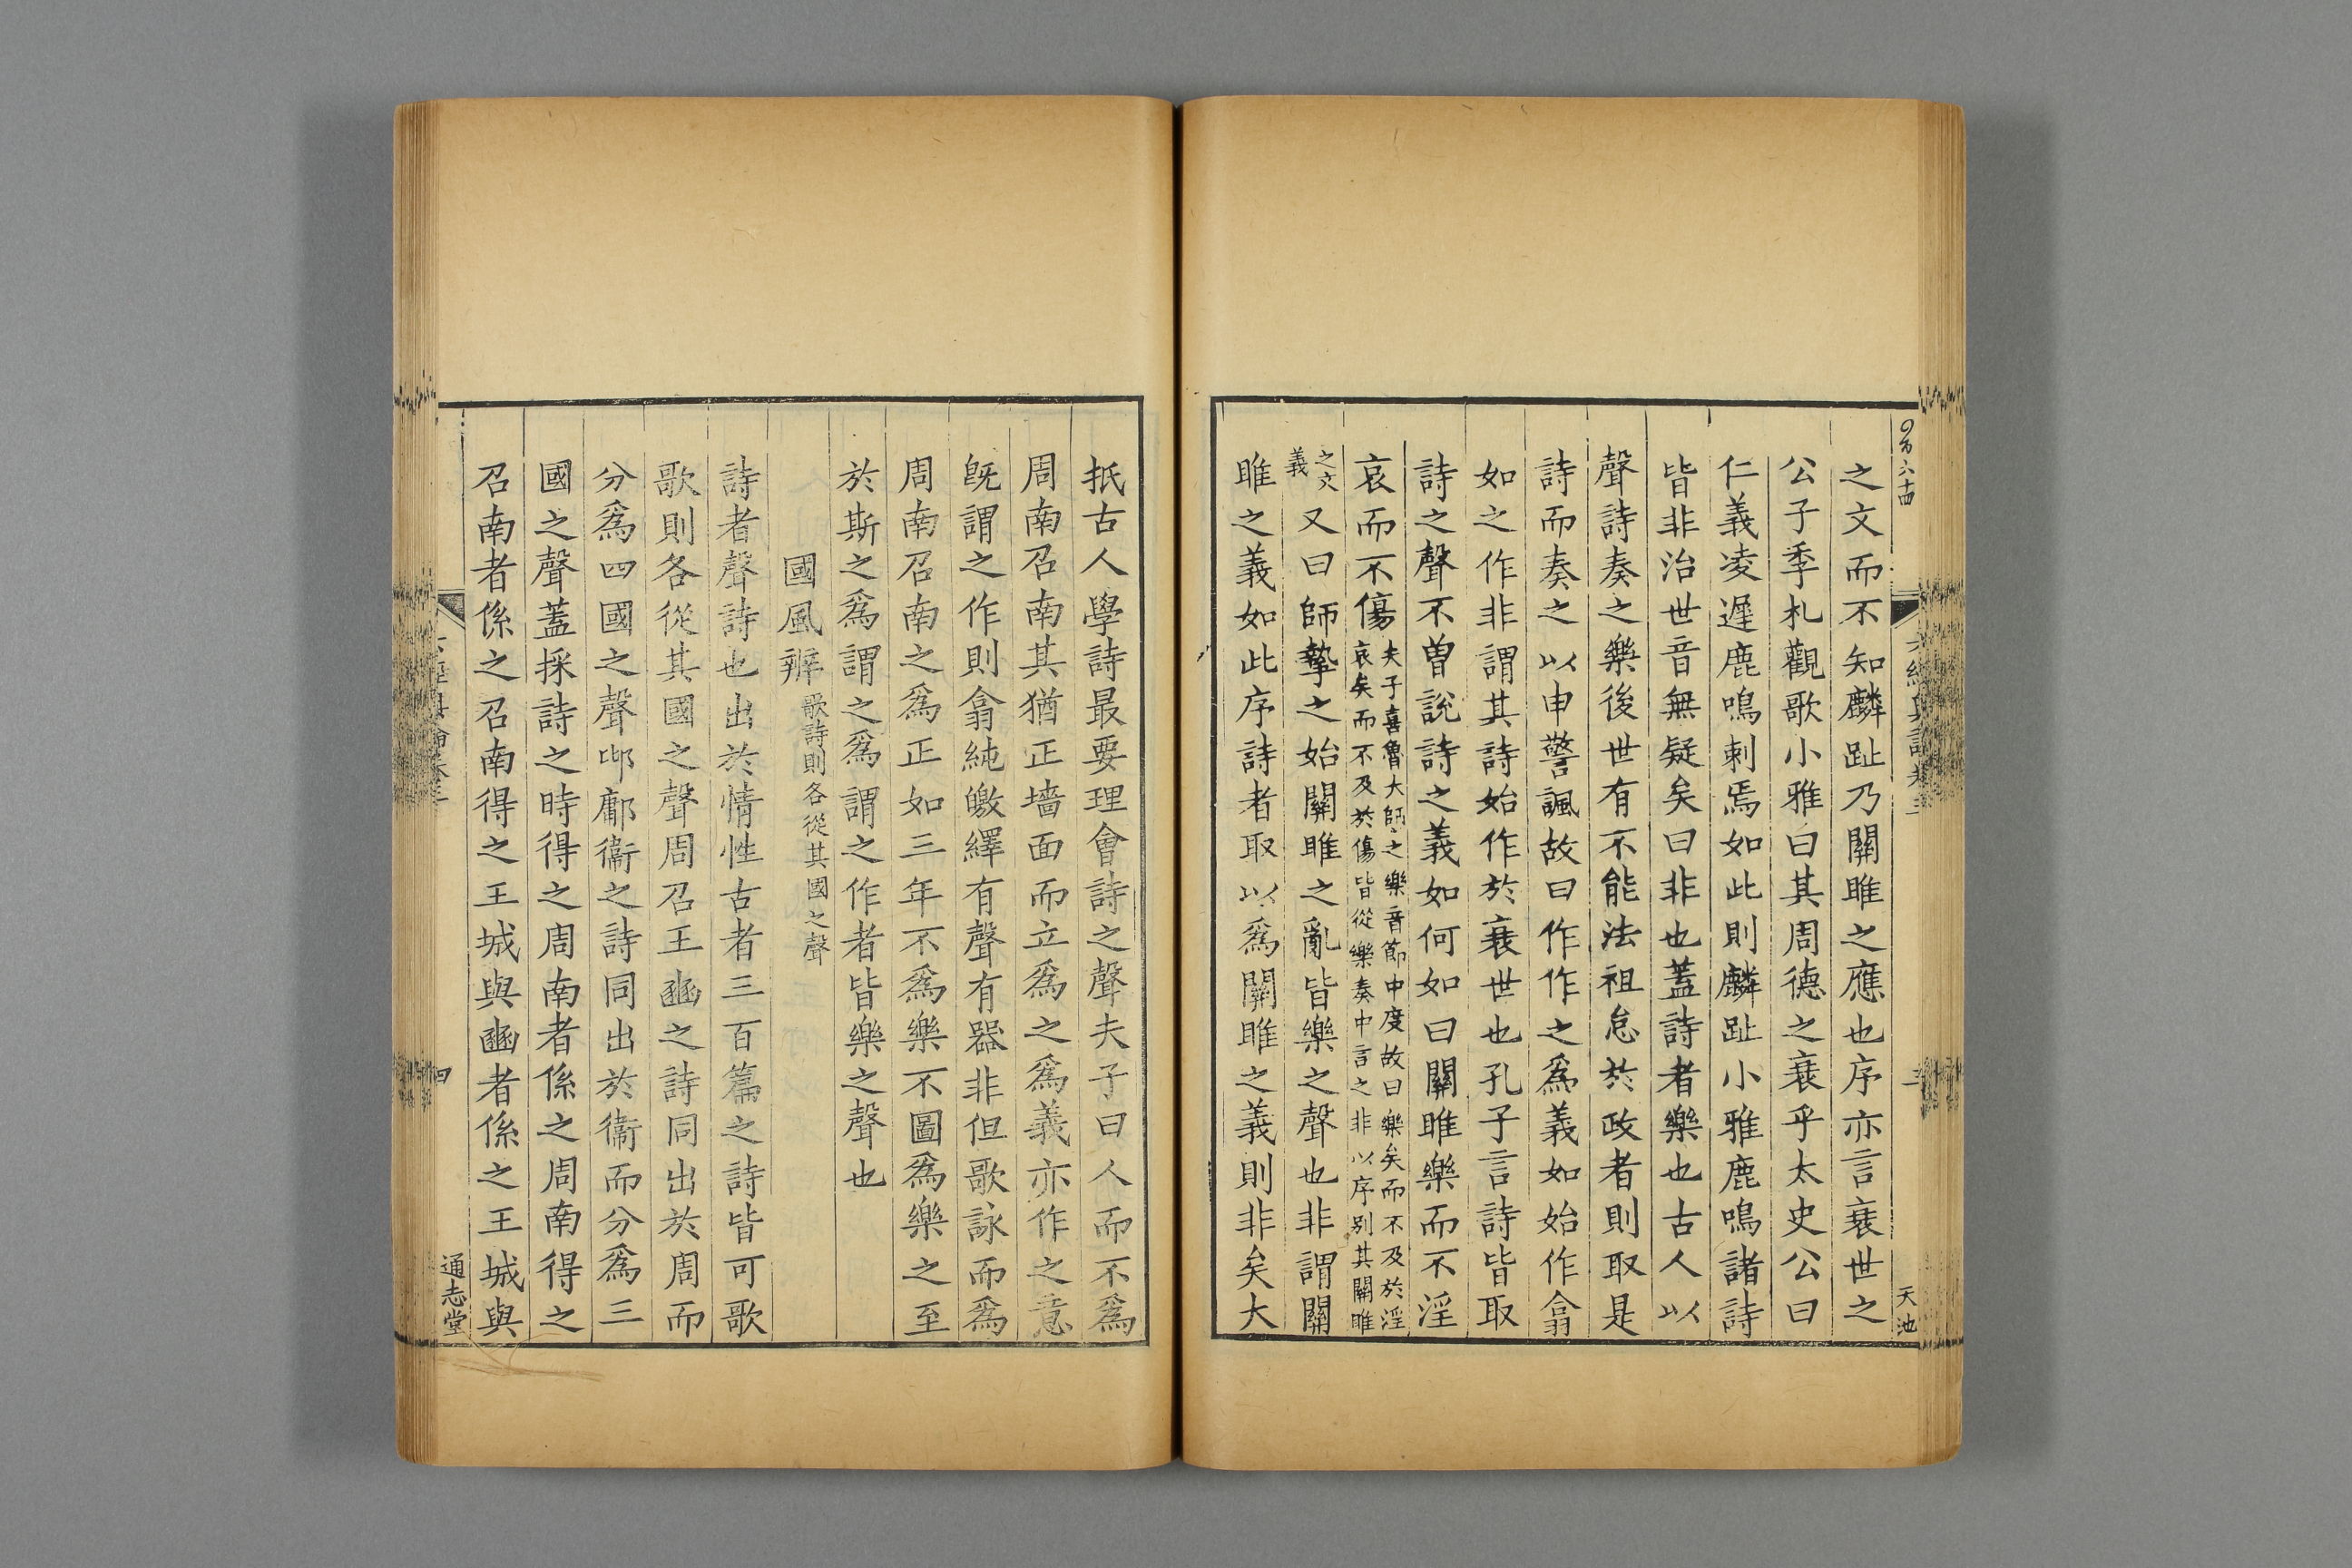 之文而不知麟趾乃關雎之應也序亦言衰世之
公子季札觀歌小雅曰其周德之衰乎太史公曰
仁義凌遲鹿鳴刺焉如此則麟趾小雅鹿鳴諸詩
皆非治世音無疑矣曰非也蓋詩者樂也古人以
聲詩奏之樂後世有不能法祖怠於政者則取是
詩而奏之以申警諷故曰作作之爲義如始作翕
如之作非謂其詩始作於衰世也孔子言詩皆取
詩之聲不曽說詩之義如何如曰關雎樂而不淫
哀而不傷
夫子喜魯大師之樂音節中度故曰樂矣而不及於淫
哀矣而不及於傷皆從樂奏中言之非以序别其關雎
之文
義
又曰師摯之始關雎之亂皆樂之聲也非謂關
雎之義如此序詩者取以爲關雎之義則非矣大
天池
抵古人學詩最要理會詩之聲夫子曰人而不爲
周南召南其猶正墻面而立爲之爲義亦作之意
旣謂之作則翕純皦繹有聲有器非但歌詠而爲
周南召南之爲正如三年不爲樂不圖爲樂之至
於斯之爲謂之爲謂之作者皆樂之聲也
國風辨
歌詩則各從其國之聲
詩者聲詩也出於情性古者三百篇之詩皆可歌
歌則各從其國之聲周召王豳之詩同出於周而
分爲四國之聲邶鄘衞之詩同出於衞而分爲三
國之聲蓋採詩之時得之周南者係之周南得之
召南者係之召南得之王城與豳者係之王城與
四
通志堂